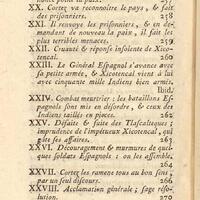 XX. Cortez va reconnoître le pays, & fait
des prisonniers. 258
XXI. Il renvoye les prisonniers, & en de-
mandant de nouveau la paix, il fait les
plus terribles menaces. 259
XXII. Cruauté & réponse insolente de Xico-
tencal. 260
XXIII. Le Général Espagnol s'avance avec
sa petite armée, & Xicotencal vient à lui
avec cinquante mille Indiens bien armés.
Ibid.
XXIV. Combat meurtrier : les bataillons Es-
pagnols sont mis en désordre, & ceux des
Indiens taillés en pièces. 262
XXV. Défaite & fuite des Tlascalteques ;
imprudence de l'impétueux Xicotencal, qui
gâte ses affaires. 263
XXVI. Découragement & murmures de quel-
ques soldats Espagnols : on les assemble.
264
XXVII. Cortez les ramene tous au bon sens,
par un seul discours. 266
XXVIII. Acclamation générale ; sage réso-
lution. 270